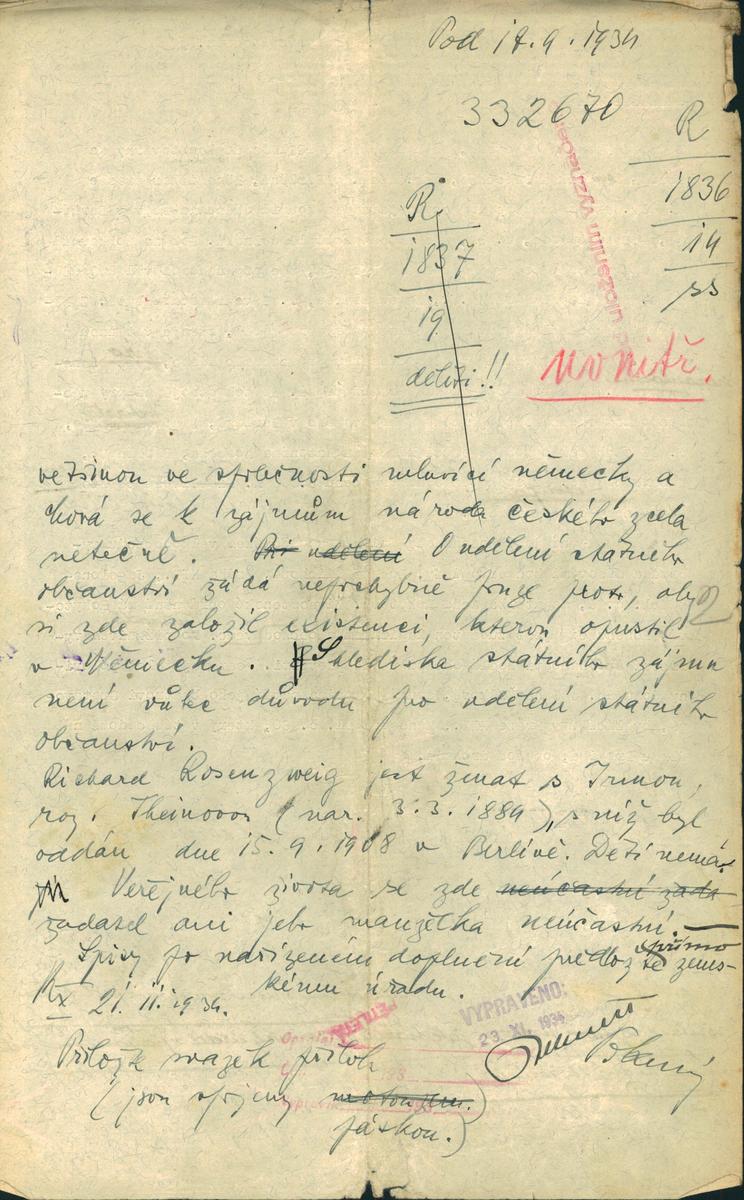 Pod 17.9.1934
332670
R
1836
14
ss
R
1837
19
delší!!
uložením vyznače
uvnitř.
většinou ve společnosti mluvící německy a
chová se k zájmům národa českého zcela
netečně. Při udělení O udělení státního
občanství žádá nepochybně pouze proto, aby
si zde založil existenci, kterou opustil
2
v Německu. S hlediska státního zájmu
není vůbec důvodu pro udělení státního
občanství.
Richard Rosenzweig jest ženat s Irmou,
roz. Theinovou (nar. 3.3.1884), s níž byl
oddán dne 15.9.1908 v Berlíně. Děti nemá.
Veřejného života se zde neúčastní žada
žadatel ani jeho manželka neúčastní.
Spisy po nařízeném doplnění předlož přímo zems-
kému úradu.
21.11.1934.
VYPRAVENO:
23. XI. 1934
Přilož svazek příloh
(jsou spojeny motouzem.
páskou.)